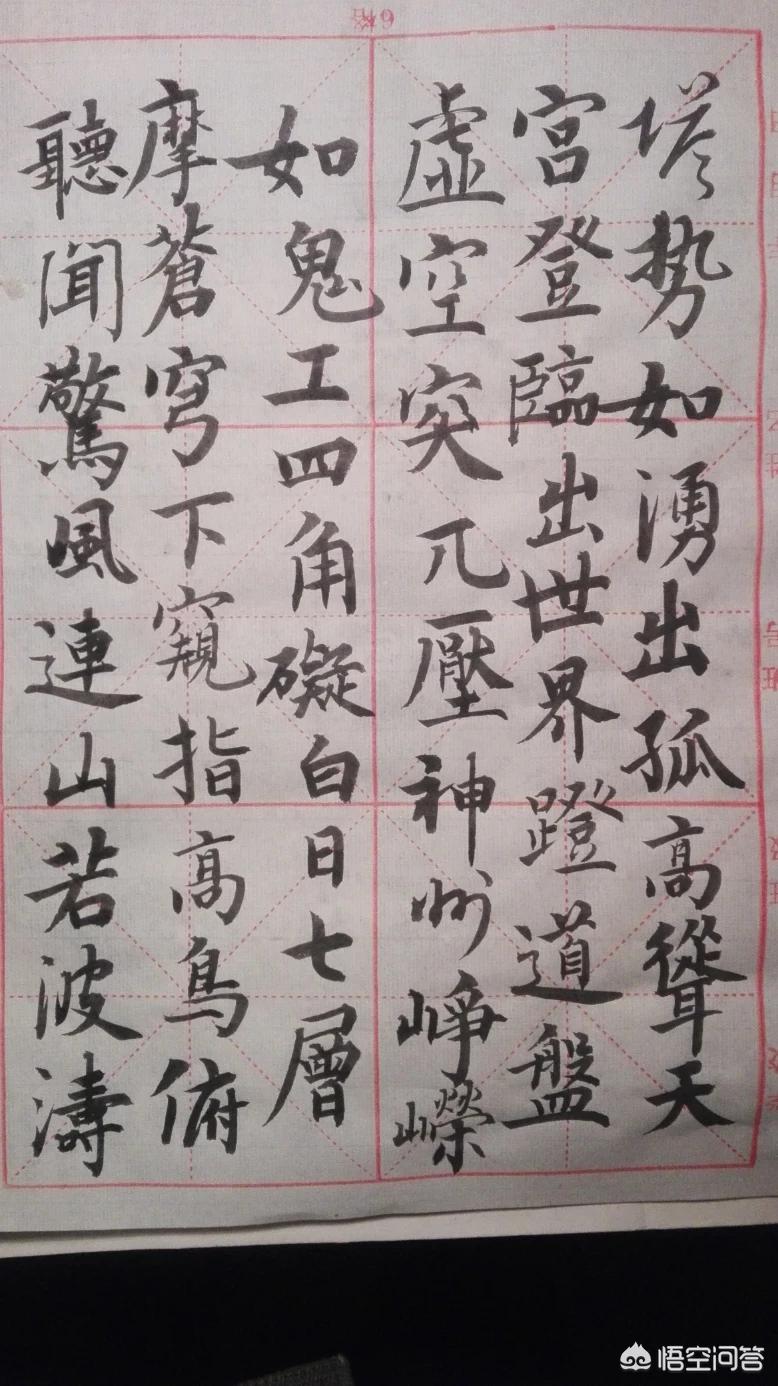 塔势如湧出孤高聳天
宮登臨出世界蹬道盤
虛空突兀壓神州崢嶸
如鬼工四角礙白日七層
摩蒼穹下窺指高鳥俯
聽聞驚風連山若波濤
6格
悟空问答